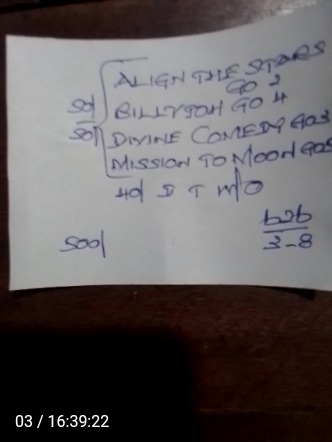 ALIGN THE STARS
GO 2
50/ BILLYJOH GO 4
50/ DIVINE COMEDY GO3
MISSION TO MOON GO5
4d D T W/O
500/
626
3-8
03 / 16:39:22